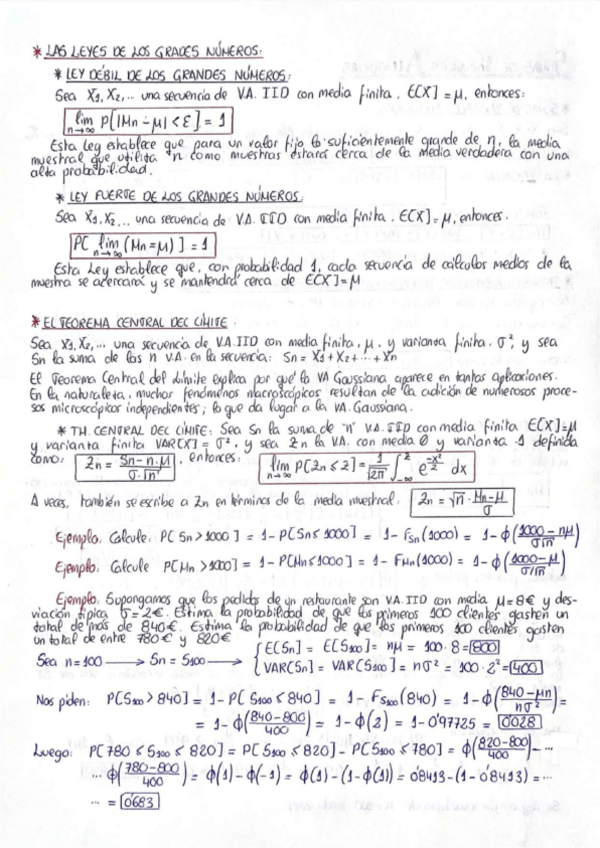 * LAS LEYES DE LOS GRADES NÚMEROS:
* LEY DÉBIL DE LOS GRANDES NÚMEROS:
Sea X1, X2,... una secuencia de V.A. IID con media finita, E[X] = μ, entonces:
lim n→∞ P[|Mn - μ| < ε] = 1
Esta Ley establece que para un valor fijo lo suficientemente grande de n, la media
muestral que utiliza n como muestras estará cerca de la media verdadera con una
alta probabilidad.
* LEY FUERTE DE LOS GRANDES NÚMEROS.
Sea X1, X2,... una secuencia de V.A. IID con media finita, E[X] = μ, entonces.
P[lim n→∞ (Mn = μ)] = 1
Esta Ley establece que, con probabilidad 1, cada secuencia de cálculos medios de la
muestra se acercará y se mantendrá cerca de E[X] = μ
* EL TEOREMA CENTRAL DEL LÍMITE
Sea X1, X2,... una secuencia de V.A. IID con media finita, μ, y varianza finita, σ², y sea
Sn la suma de las n V.A. en la secuencia: Sn = X1 + X2 + ... + Xn
El Teorema Central del Límite explica por qué la VA Gaussiana aparece en tantas aplicaciones.
En la naturaleza, muchos fenómenos macroscópicos resultan de la adición de numerosos proce-
sos microscópicos independientes; lo que da lugar a la VA. Gaussiana.
* TH. CENTRAL DEL LÍMITE: Sea Sn la suma de "n" V.A. IID con media finita E[X] = μ
y varianza finita VAR[X] = σ², y sea Zn la VA. con media 0 y varianza 1 definida
como: Zn = (Sn - n·μ)/(σ·√n), entonces: lim n→∞ P[Zn ≤ z] = 1/√2π ∫_{-∞}^{z} e^{-x²/2} dx
A veces, también se escribe a Zn en términos de la media muestral. Zn = √n · (Mn - μ)/σ
Ejemplo. Calcule: P[Sn > 1000] = 1 - P[Sn ≤ 1000] = 1 - FSn(1000) = 1 - ϕ((1000 - nμ)/(σ√n))
Ejemplo. Calcule P[Mn > 1000] = 1 - P[Mn ≤ 1000] = 1 - FMn(1000) = 1 - ϕ((1000 - μ)/(σ√n))
Ejemplo. Supongamos que los pedidos de un restaurante son VA. IID con media μ = 8€ y des-
viación típica σ = 2€. Estima la probabilidad de que los primeros 100 clientes gasten un
total de más de 840€. Estima la probabilidad de que los primeros 100 clientes gasten
un total de entre 780€ y 820€
Sea n = 100 → Sn = S100 → { E[Sn] = E[S100] = nμ = 100·8 = 800
VAR[Sn] = VAR[S100] = nσ² = 100·2² = 400
Nos piden: P[S100 > 840] = 1 - P[S100 ≤ 840] = 1 - FS100(840) = 1 - ϕ((840 - μn)/(nσ²)) =
= 1 - ϕ((840 - 800)/400) = 1 - ϕ(2) = 1 - 0'97725 = 0'028
Luego: P[780 ≤ S100 ≤ 820] = P[S100 ≤ 820] - P[S100 ≤ 780] = ϕ((820 - 800)/400) - ...
... ϕ((780 - 800)/400) = ϕ(1) - ϕ(-1) = ϕ(1) - (1 - ϕ(1)) = 0'8413 - (1 - 0'8413) = ...
... = 0'683